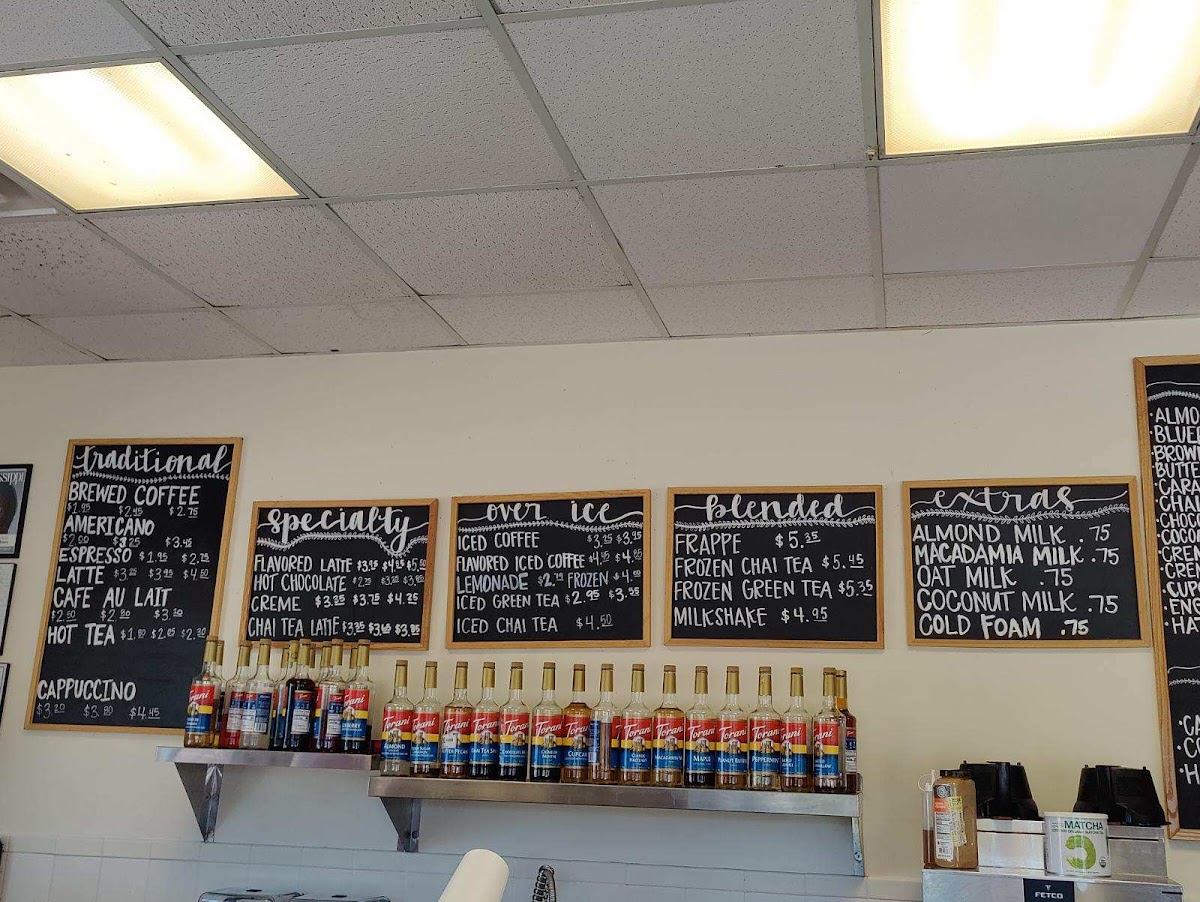 traditional
BREWED COFFEE
$1.95 $2.45 $2.75
AMERICANO
$2.00 $3.25 $3.45
ESPRESSO $1.95 $2.75
LATTE $3.25 $3.95 $4.50
CAFE AU LAIT
$2.50 $2.80 $3.20
HOT TEA $1.80 $2.05 $2.30
CAPPUCCINO
$3.20 $3.80 $4.45
specialty
FLAVORED LATTE $3.75 $4.25
HOT CHOCOLATE $2.75 $3.20
CREME $3.25 $3.75 $4.25
CHAI TEA LATTE $3.35 $3.65 $3.95
over ice
ICED COFFEE $3.25 $3.75
FLAVORED ICED COFFEE $4.45 $4.85
LEMONADE $2.75 FROZEN $4.00
ICED GREEN TEA $2.95 $3.55
ICED CHAI TEA $4.50
blended
FRAPPE $5.35
FROZEN CHAI TEA $5.45
FROZEN GREEN TEA $5.35
MILKSHAKE $4.95
extras
ALMOND MILK .75
MACADAMIA MILK .75
OAT MILK .75
COCONUT MILK .75
COLD FOAM .75
Torani
ALMOND
Torani
Torani
Torani
CHAI TEA
Torani
Torani
Torani
CUPCAKE
Torani
Torani
Torani
Torani
MAPLE
Torani
PEANUT BUTTER
Torani
PEPPERMINT
Torani
Torani
MATCHA
FETCO